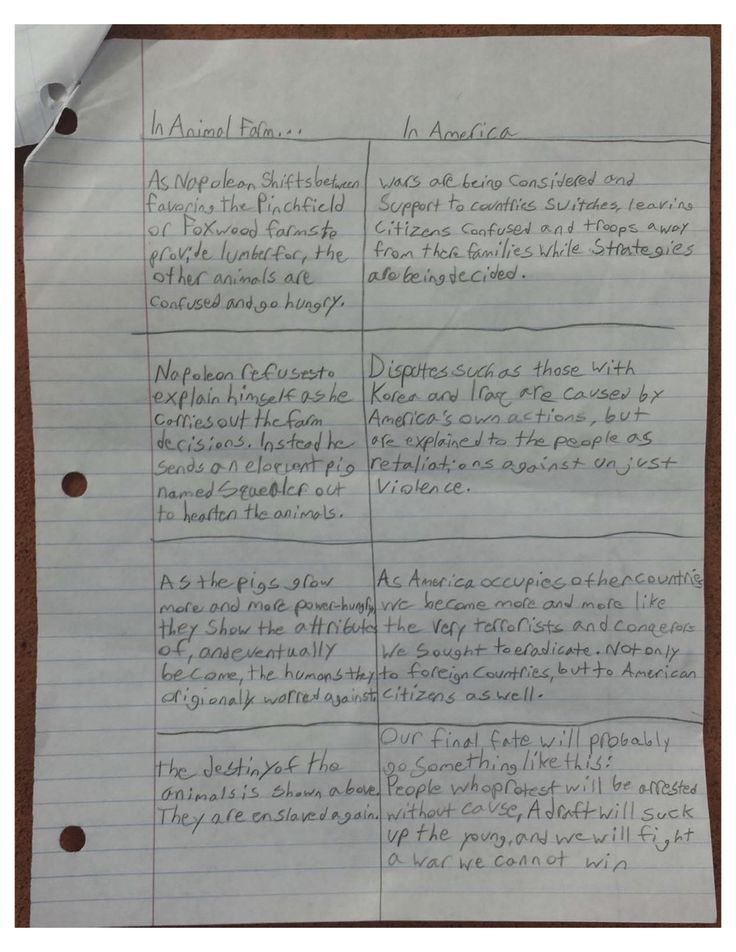 In Animal Farm...
In America
As Napolean Shifts between
favoring the Pinchfield
or Foxwood farms to
provide lumber for, the
other animals are
confused and go hungry.
wars are being considered and
Support to countries switches, leaving
citizens confused and troops away
from there families while Strategies
are being decided.
Napolean refuses to
explain himself as he
carries out the farm
decisions. Instead he
sends an elocuent pig
named Squealer out
to hearten the animals.
Disputes such as those with
Korea and Iraq are caused by
America's own actions, but
are explained to the people as
retaliations against unjust
violence.
As the pigs grow
more and more power-hungry,
they show the attributes
of, and eventually
become, the humans they
origionally worred against.
As America occupies other countries
we become more and more like
the very terrorists and conqerors
we sought to eradicate. Not only
to foreign countries, but to American
citizens as well.
The destiny of the
animals is shown above.
They are enslaved again.
Our final fate will probably
go something like this:
People who protest will be arrested
without cause, A draft will suck
up the young, and we will fight
a war we cannot win